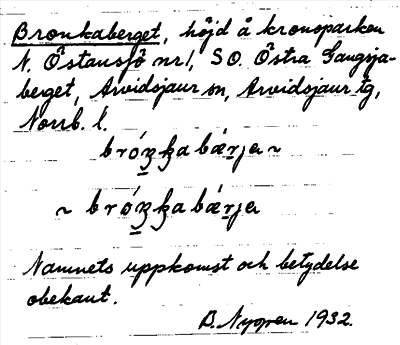 Bronkaberget, höjd å kronoparken
N. Östansjö nr 1, SO. Östra Gaugsja-
berget, Arvidsjaur sn, Arvidsjaur tg,
Norrb. l.
Namnets uppkomst och betydelse
obekant.
B. Nygren 1932.